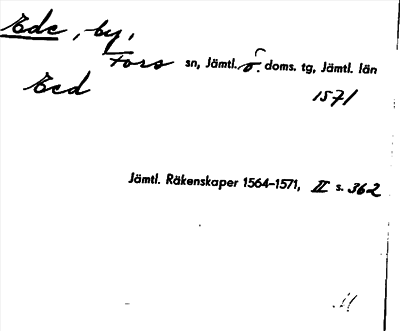 Ede, by,
Fors sn, Jämtl. ö. doms. tg, Jämtl. län
Eed 1571
Jämtl. Räkenskaper 1564–1571, II s. 362